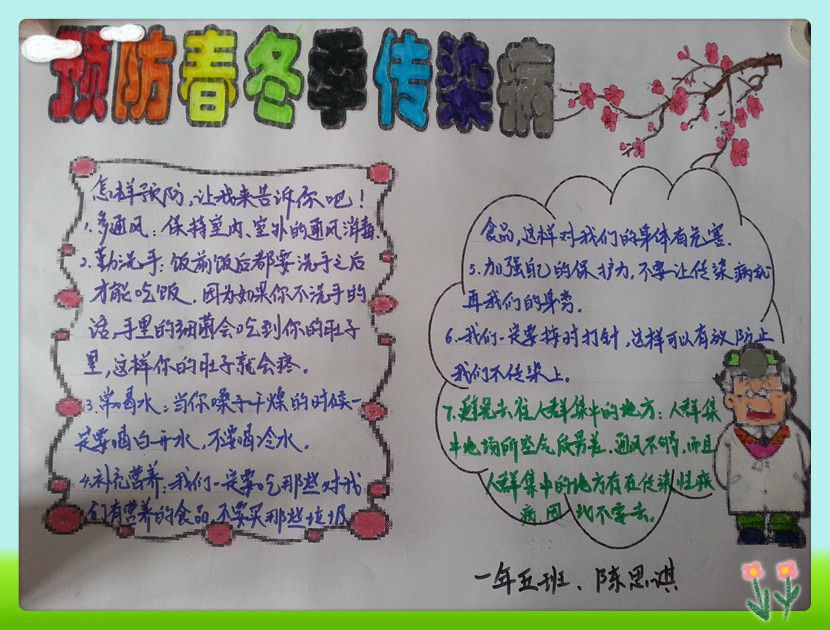 预防春冬季传染病
怎样预防,让我来告诉你吧!
1.多通风:保持室内、室外的通风消毒.
2.勤洗手:饭前饭后都要洗手之后
才能吃饭。因为如果你不洗手的
话,手里的细菌会吃到你的肚子
里,这样你的肚子就会疼。
3.常喝水:当你嗓子干燥的时候一
定要喝白开水,不要喝冷水.
4.补充营养:我们一定要吃那些对我
们有营养的食品,不要买那些垃圾
食品,这样对我们的身体有危害.
5.加强自己的保护力,不要让传染病
再我们的身旁.
6.我们一定要按时打针,这样可以有效防止
我们不传染上。
7.避免去往人群集中的地方:人群集
中场所空气质量差.通风不够,而且
人群集中的地方有在传染性疾
病因 不要去。
一年五班、陈思淇